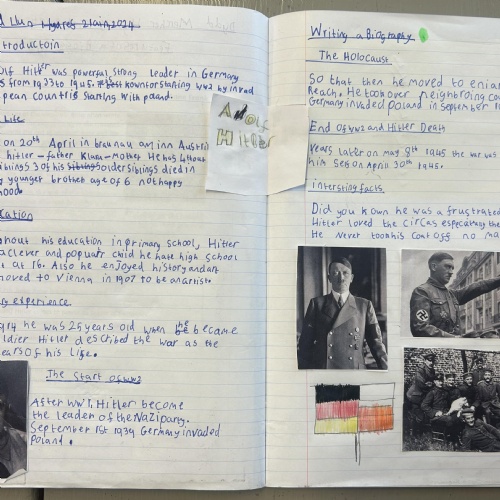 21 Ain, 2024
troductoin
olf Hitler was powerful strong leader in Germany
s from 1933 to 1945. kown for starting ww2 by invad
pean countris starting with poland.
Life
on 20th April in braunau am inn Austri
hitler - father Klara - Mother He has 4 bro
iblings 3 of his older siblings died in
younger brother age of 6. not happy
hood.
cation
ghout his education in primary school, Hitler
a clever and popular child he hate high school
at 16. Also he enjoyed history and art
moved to Vienna in 1907 to be an artist.
experience
gry he was 25 years old when he became
ldier Hitler described the war as the
ears of his Life.
The Start of ww2
After ww1, Hitler become
the leader of the Nazi party.
September 1st 1939 Germany invaded
Poland.
Adolf
Hitler
Writing a Biography
The Holocaust
So that then he moved to
Reach. He took over neighbroing cou
Germany invaded Poland in September
End of ww2 and Hitler Death
Years later on may 8th 1945 the war was
him self on April 30th 1945.
intersting facts
Did you known he was a frustrated
Hitler loved the Circas especialy the
He Never took his Coat off no ma